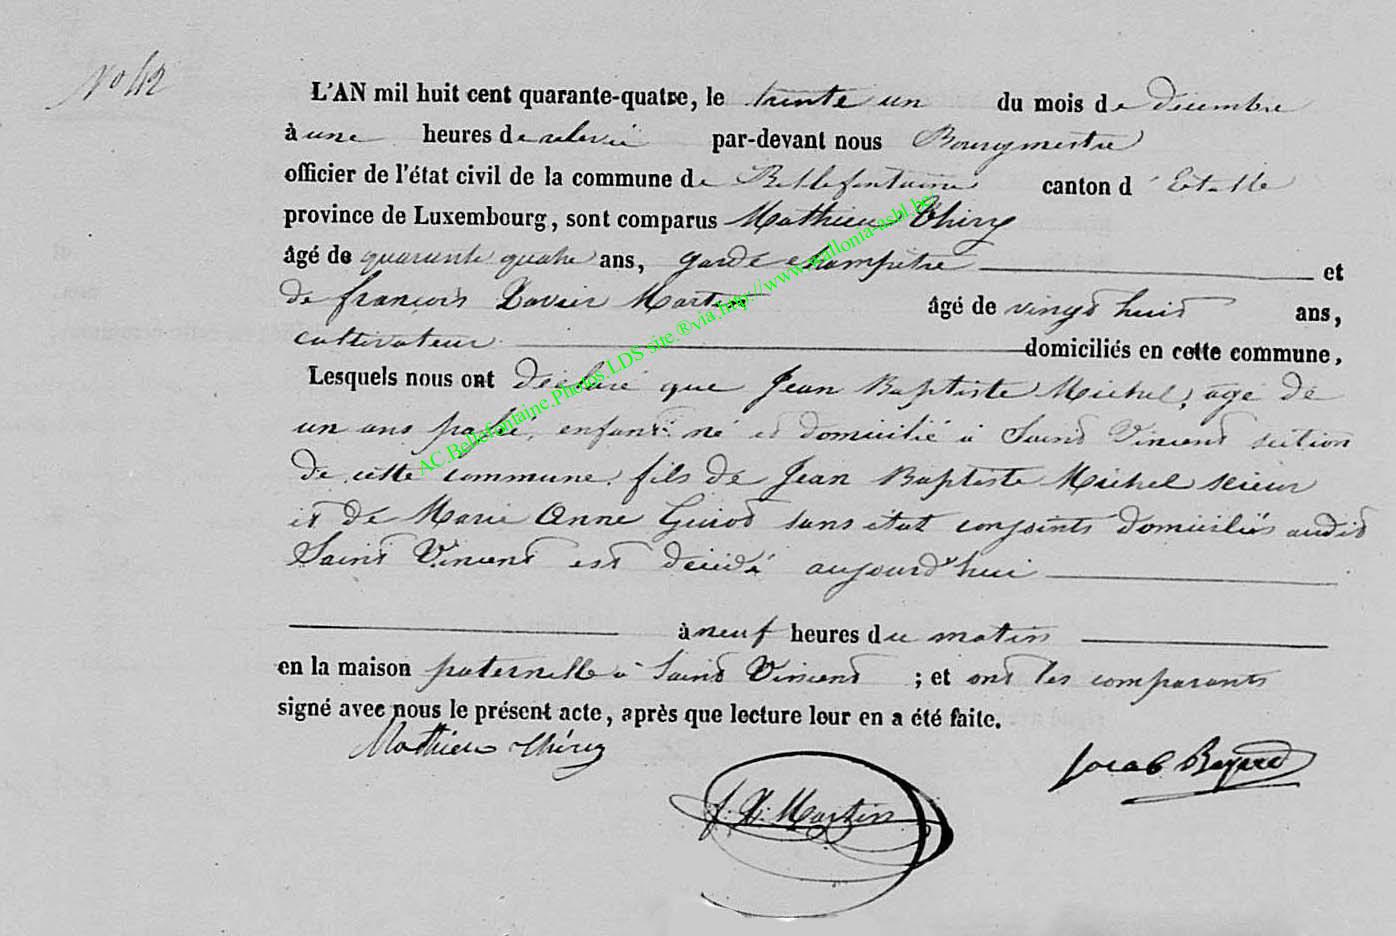 No 42
L'AN mil huit cent quarante-quatre, le trente un du mois de décembre
à une heures de relevée par-devant nous Bourgmestre
officier de l'état civil de la commune de Bellefontaine canton d'Etalle
province de Luxembourg, sont comparus Mathieu Thiry
âgé de quarante quatre ans, garde champêtre et
de françois Xavier Martin âgé de vingt huit ans,
cultivateur domiciliés en cette commune,
Lesquels nous ont déclaré que Jean Baptiste Michel, age de
un ans passé, enfant né et domicilié à Saint Vincent section
de cette commune, fils de Jean Baptiste Michel scieur
et de Marie Anne Guiot sans état conjoints domiciliés audit
Saint Vincent est décédé aujourd'hui
à neuf heures du matin
en la maison paternelle à Saint Vincent ; et ont les comparants
signé avec nous le présent acte, après que lecture leur en a été faite.
Mathieu Thiry
f. X. Martin
Jacob Bayard
AC.Bellefontaine.Photos.LDS site.®via.http://www.wallonia-asbl.be/